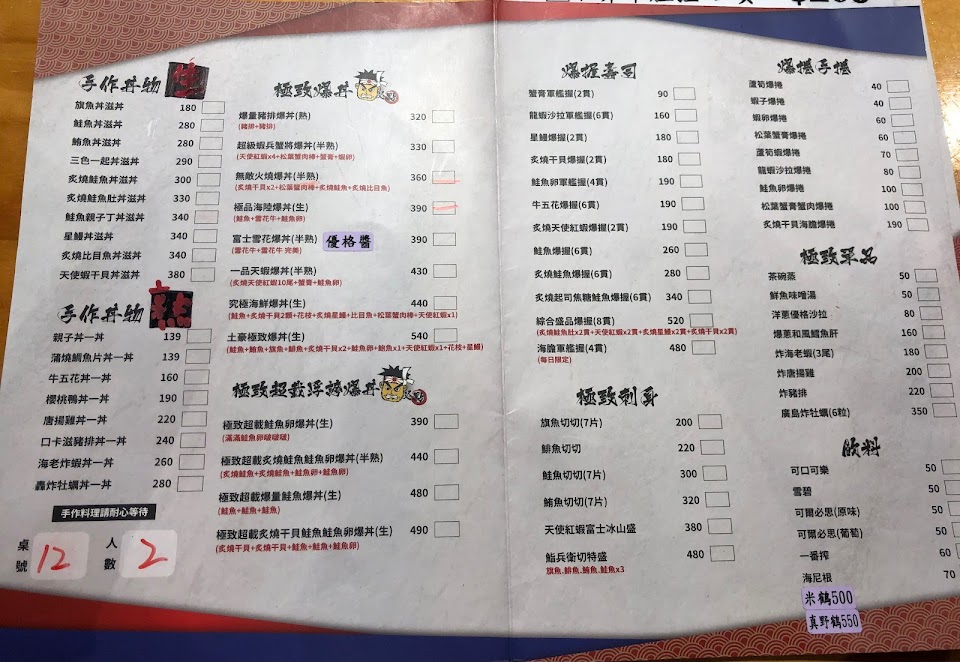 手作丼物
旗魚丼滋丼 180
鮭魚丼滋丼 280
鮪魚丼滋丼 280
三色一起丼滋丼 290
炙燒鮭魚丼滋丼 300
炙燒鮭魚肚丼滋丼 330
鮭魚親子丁丼滋丼 340
星鰻丼滋丼 340
炙燒比目魚丼滋丼 340
天使蝦干貝丼滋丼 380
手作丼物 熟
親子丼一丼 139
蒲燒鯛魚片丼一丼 139
牛五花丼一丼 160
櫻桃鴨丼一丼 190
唐揚雞丼一丼 220
口卡滋豬排丼一丼 240
海老炸蝦丼一丼 260
轟炸牡蠣丼一丼 280
手作料理請耐心等待
桌號 12
人數 2
極致爆丼
爆量豬排爆丼(熟) 320
(豬排+豬排)
超級蝦兵蟹將爆丼(半熟) 330
(天使紅蝦x4+松葉蟹肉棒+蟹膏+蝦卵)
無敵火燒爆丼(半熟) 360
(炙燒干貝x2+松葉蟹肉棒+炙燒鮭魚+炙燒比目魚)
極品海陸爆丼(生) 390
(鮭魚+雪花牛+鮭魚卵)
富士雪花爆丼(半熟) 優格醬 390
(雪花牛+雪花牛 完美)
一品天蝦爆丼(半熟) 430
(炙燒天使紅蝦10尾+蟹膏+鮭魚卵)
究極海鮮爆丼(生) 440
(鮭魚+炙燒干貝2顆+花枝+炙燒星鰻+比目魚+松葉蟹肉棒+天使紅蝦x1)
土豪極致爆丼(生) 540
(鮭魚+鮪魚+旗魚+鯡魚+炙燒干貝x2+鮭魚卵+鮑魚x1+天使紅蝦x1+花枝+星鰻)
極致超載浮誇爆丼
極致超載鮭魚卵爆丼(生) 390
(滿滿鮭魚卵啵啵啵)
極致超載炙燒鮭魚鮭魚卵爆丼(半熟) 440
(炙燒鮭魚+炙燒鮭魚+鮭魚卵+鮭魚卵)
極致超載爆量鮭魚爆丼(生) 480
(鮭魚+鮭魚+鮭魚)
極致超載炙燒干貝鮭魚鮭魚卵爆丼(生) 490
(炙燒干貝+炙燒干貝+鮭魚+鮭魚+鮭魚卵)
爆握壽司
蟹膏軍艦握(2貫) 90
龍蝦沙拉軍艦握(6貫) 160
星鰻爆握(2貫) 180
炙燒干貝爆握(2貫) 180
鮭魚卵軍艦握(4貫) 190
牛五花爆握(6貫) 190
炙燒天使紅蝦爆握(2貫) 190
鮭魚爆握(6貫) 260
炙燒鮭魚爆握(6貫) 280
炙燒起司焦糖鮭魚爆握(6貫) 340
綜合盛品爆握(8貫) 520
(炙燒鮭魚肚x2貫+天使紅蝦x2貫+炙燒星鰻x2貫+炙燒干貝x2貫)
海膽軍艦握(4貫) 480
(每日限定)
極致刺身
旗魚切切(7片) 200
鯡魚切切 220
鮭魚切切(7片) 300
鮪魚切切(7片) 320
天使紅蝦富士冰山盛 380
鮨兵衛切特盛 480
旗魚.鯡魚.鮪魚.鮭魚x3
爆捲手捲
蘆筍爆捲 40
蝦子爆捲 40
蝦卵爆捲 60
松葉蟹膏爆捲 60
蘆筍蝦爆捲 70
龍蝦沙拉爆捲 80
鮭魚卵爆捲 100
松葉蟹膏蟹肉爆捲 100
炙燒干貝海膽爆捲 190
極致單品
茶碗蒸 50
鮮魚味噌湯 50
洋蔥優格沙拉 80
爆蔥和風鱈魚肝 160
炸海老蝦(3尾) 180
炸唐揚雞 200
炸豬排 220
廣島炸牡蠣(6粒) 350
飲料
可口可樂 50
雪碧 50
可爾必思(原味) 50
可爾必思(葡萄) 50
一番搾 60
海尼根 70
米鶴500
真野鶴550